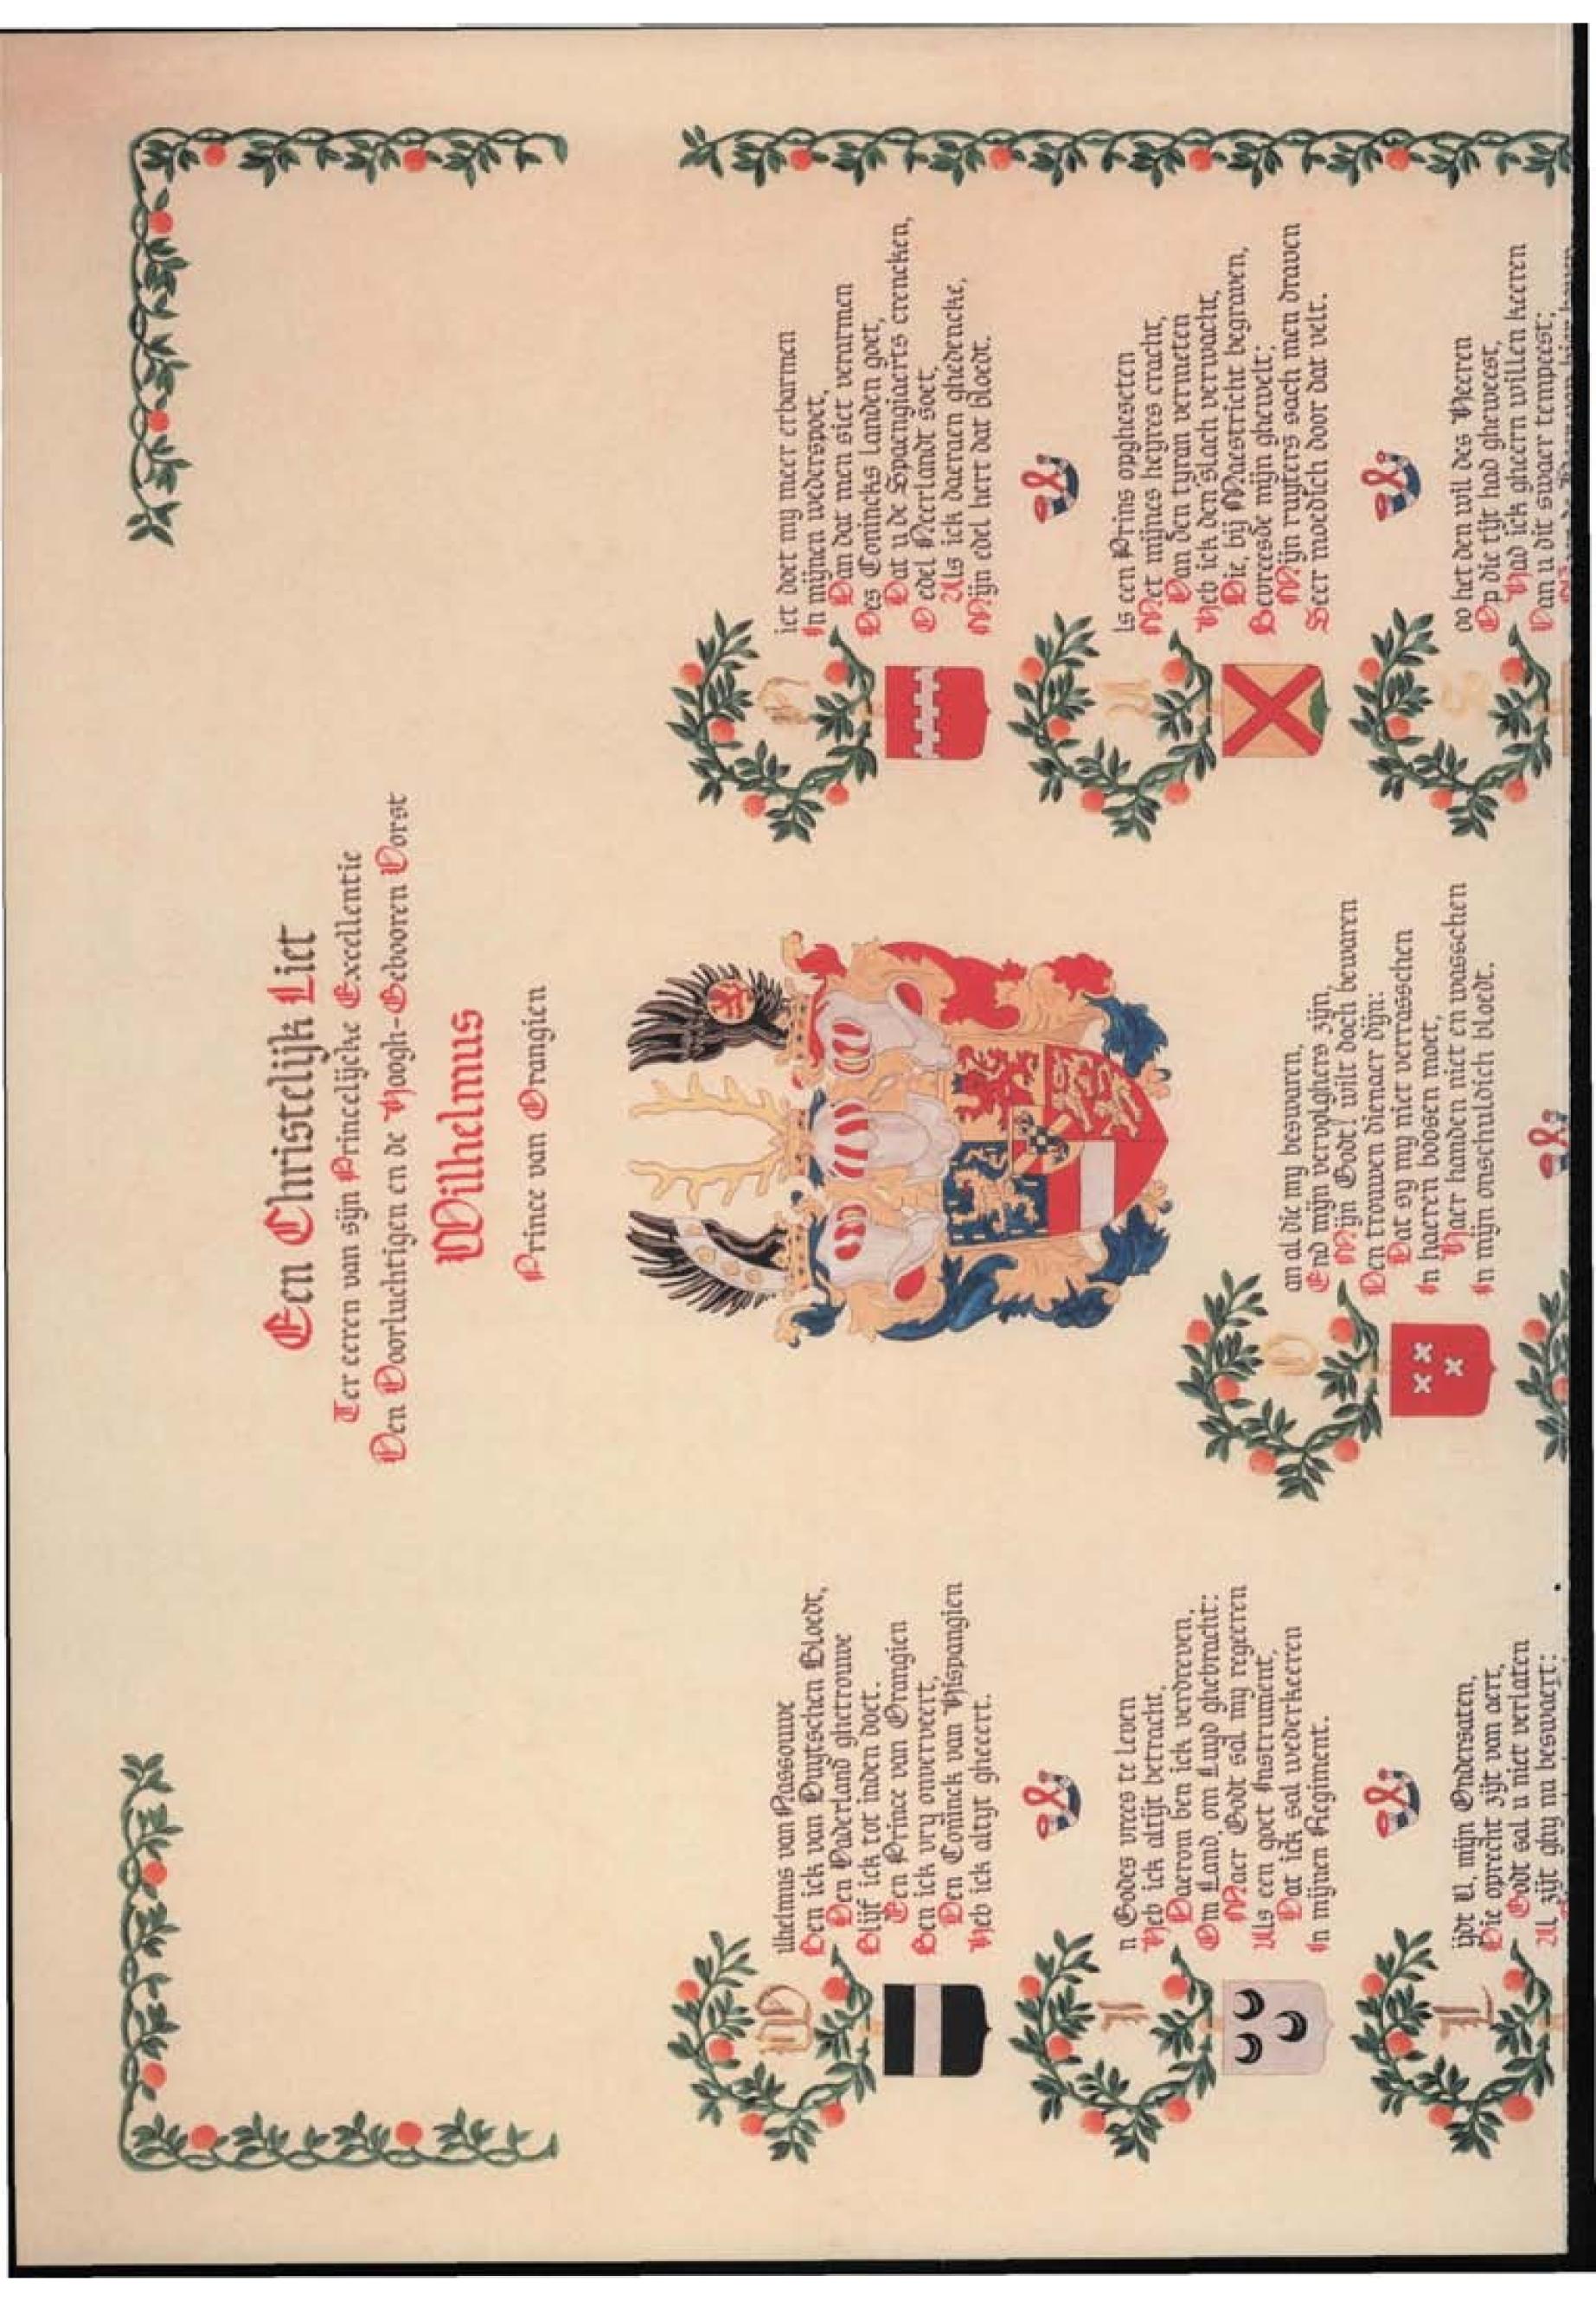 Een Christelijk Liet
Ter eeren van sijn Princelijcke Excellentie
Den Doorluchtigen en de Hoogh-Gebooren Vorst
Wilhelmus
Prince van Orangien
Wilhelmus van Nassouwe
Ben ick van Duytschen Bloedt,
Den Vaderland ghetrouwe
Blijf ick tot inden doet.
Een Prince van Orangien
Ben ick vry onverveert,
Den Coninck van Hispangien
Heb ick altyt gheeert.
In Godes vrees te leven
Heb ick altijt betracht,
Daerom ben ick verdreven,
Om Land, om Luyd ghebracht:
Maer Godt sal my regeeren
Als een goet Instrument,
Dat ick sal wederkeeren
In mijnen Regiment.
Lijdt U, mijn Ondersaten,
Die oprecht zijt van aert,
Godt sal u niet verlaten
Al zijt ghy nu beswaert:
Van al die my beswaren,
End mijn vervolghers zijn,
Mijn Godt! wilt doch bewaren
Den trouwen dienaer dijn:
Dat sy my niet verrasschen
In haeren boosen moet,
Haer handen niet en wasschen
In mijn onschuldich bloedt.
Niet doet my meer erbarmen
In mijnen wederspoet,
Dan dat men siet verarmen
Des Conincks Landen goet,
Dat u de Spaengiaerts crencken,
O edel Neerlandt soet,
Als ick daeraen ghedencke,
Mijn edel hert dat bloedt.
Als een Prins opgheseten
Met mijnes heyres cracht,
Van den tyran vermeten
Heb ick den slach verwacht,
Die, bij Maestricht begraven,
Bevreesde mijn ghewelt;
Mijn ruyters sach men draven
Seer moedich door dat velt.
Soo het den wil des Heeren
Op die tijt had gheweest,
Had ick gheern willen keeren
Van u dit swaer tempeest;